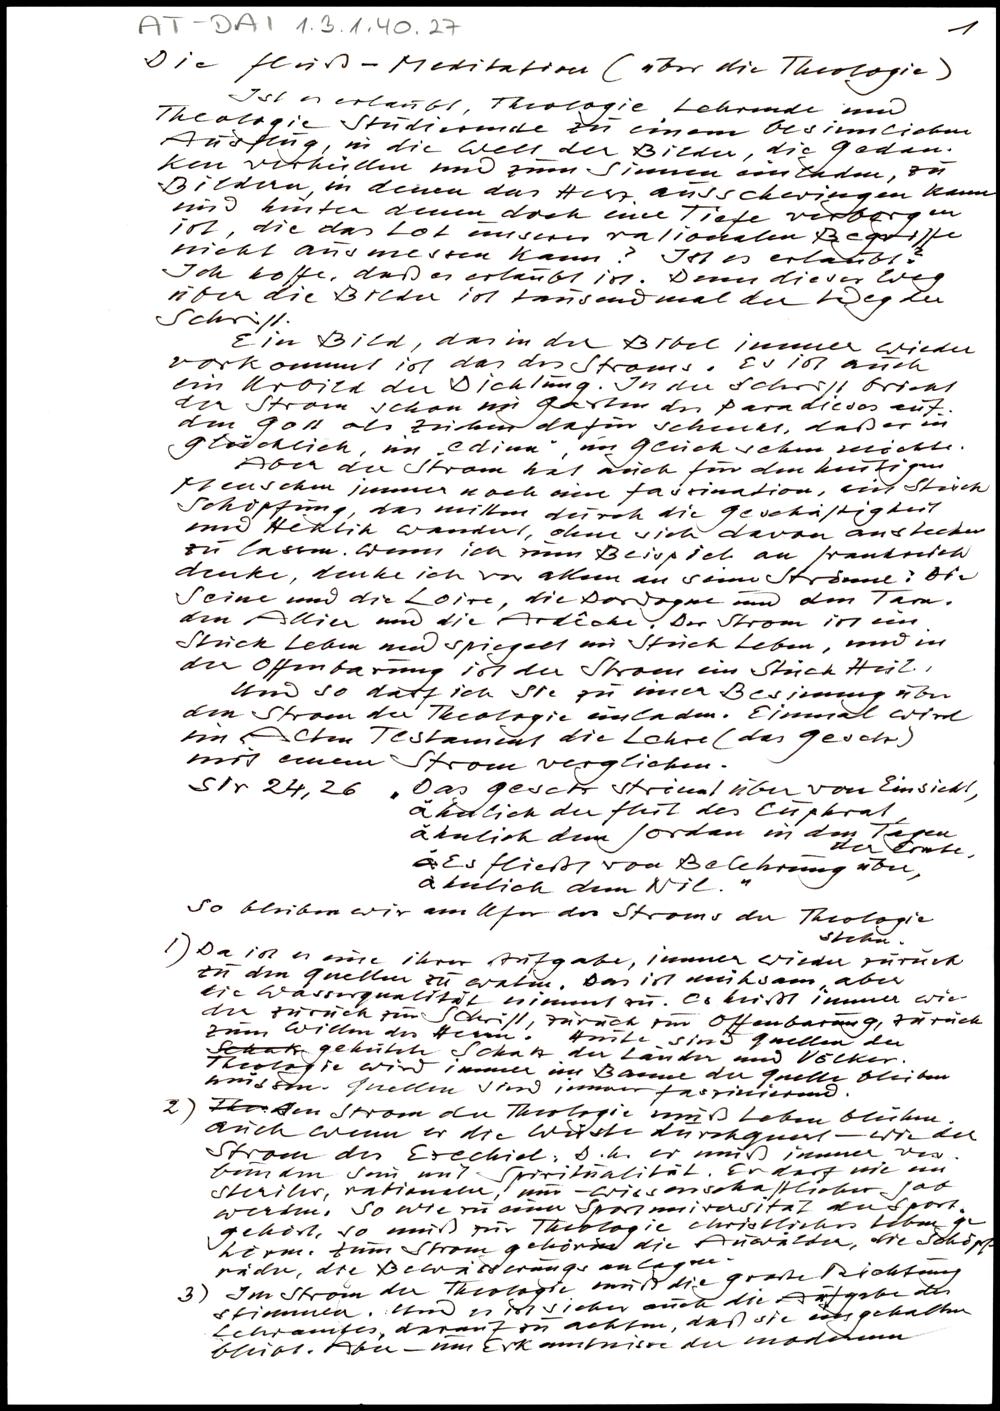 AT-DAI 1.3.1.40.27
1
Die Fluß-Meditation (über die Theologie)
Ist es erlaubt, Theologie Lehrende und
Theologie Studierende zu einem besinnlichen
Ausflug, in die Welt der Bilder, die Gedan-
ken verhüllen und zum Sinnen einladen, zu
Bildern, in denen das Herz ausschwingen kann
und hinter denen doch eine Tiefe verborgen
ist, die das Lot unserer rationalen Begriffe
nicht ausmessen kann? Ist es erlaubt?
Ich hoffe, daß es erlaubt ist. Denn dieser Weg
über die Bilder ist tausendmal der Weg der
Schrift.
Ein Bild, das in der Bibel immer wieder
vorkommt ist das des Stroms. Es ist auch
ein Urbild der Dichtung. In der Schrift bricht
der Strom schon im Garten des Paradieses auf,
den Gott als Zeichen dafür schenkt, daß er uns
glücklich, im "Edinu", im Glück sehen möchte.
Aber der Strom hat auch für den heutigen
Menschen immer noch eine Faszination, ein Stück
Schöpfung, das mitten durch die Geschäftigkeit
und Hektik wandert, ohne sich davon anstecken
zu lassen. Wenn ich zum Beispiel an Frankreich
denke, denke ich vor allem an seine Ströme: Die
Seine und die Loire, die Dordogne und den Tarn,
den Allier und die Ardêche. Der Strom ist ein
Stück Leben und spiegelt ein Stück Leben, und in
der Offenbarung ist der Strom ein Stück Heil.
Und so darf ich Sie zu einer Besinnung über
den Strom der Theologie einladen. Einmal wird
im Alten Testament die Lehre (das Gesetz)
mit einem Strom verglichen.
Sir 24,26 "Das Gesetz strömt über von Einsicht,
ähnlich der Flut des Euphrat,
ähnlich dem Jordan in den Tagen
der Ernte,
Es fließt von Belehrung über,
ähnlich dem Nil."
So bleiben wir am Ufer des Stroms der Theologie
stehn.
1) Da ist es eine ihrer Aufgabe, immer wieder zurück
zu den Quellen zu waten. Das ist mühsam, aber
die Wasserqualität nimmt zu. Es heißt immer wie-
der zurück zur Schrift, zurück zur Offenbarung, zurück
zum Willen des Herrn. Heute sind Quellen der
Schatz gehütete Schatz der Länder und Völker.
Theologie wird immer im Banne der Quelle bleiben
müssen. Quellen sind immer faszinierend.
2) Den Strom der Theologie muß Leben blühen.
auch wenn er die Wüste durchquert – wie der
Strom des Ezechiel: D.h. er muß immer ver-
bunden sein mit Spiritualität. Er darf nie ein
steriler, rationaler, nur-wissenschaftlicher Job
werden. So wie zu einer Sportuniversität der Sport
gehört, so muß zur Theologie christliches Leben ge-
hören. Zum Strom gehören die Auwälder, die Schöpf-
räder, die Bewässerungsanlagen.
3) Im Strom der Theologie muß die große Richtung
stimmen. Und es ist sicher auch die Aufgabe des
Lehramtes, darauf zu achten, daß sie eingehalten
bleibt. Aber – um Erkenntnisse der modernen